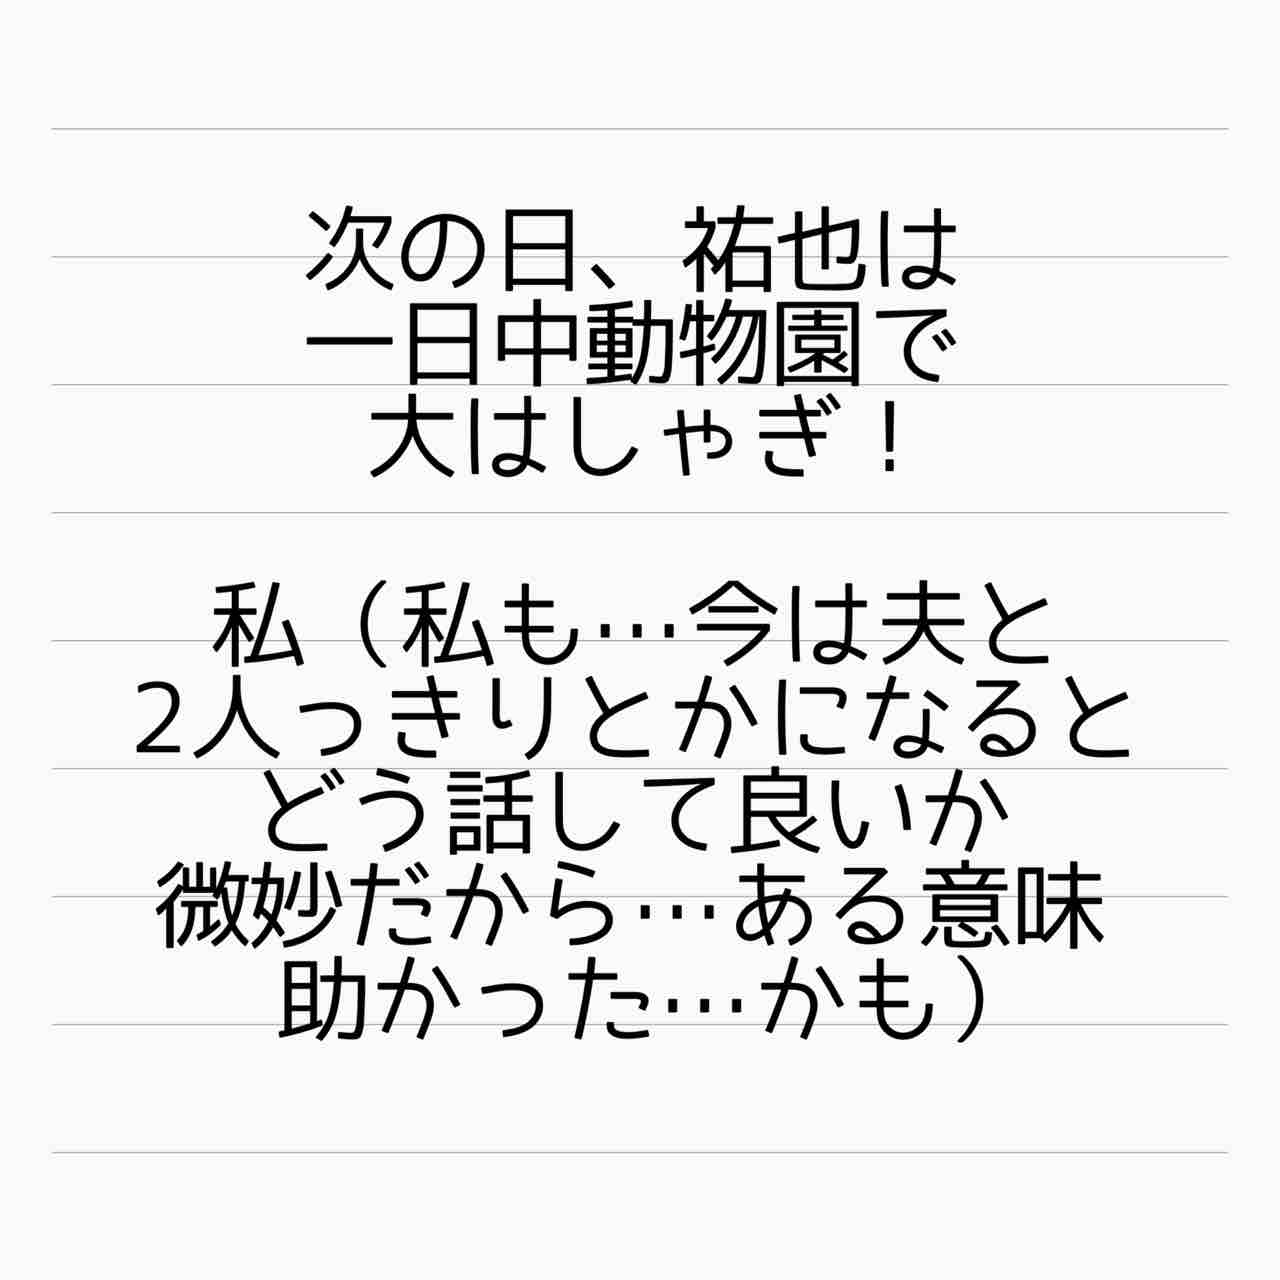 次の日、祐也は
一日中動物園で
大はしゃぎ！
私（私も…今は夫と
2人っきりとかになると
どう話して良いか
微妙だから…ある意味
助かった…かも）